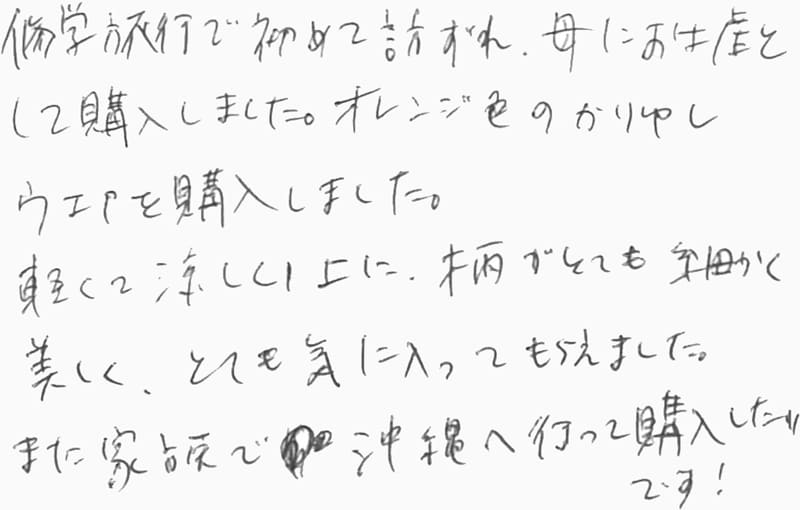 修学旅行で初めて訪ずれ、母にお土産と
して購入しました。オレンジ色のかりゆし
ウエアを購入しました。
軽くて涼しい上に、柄がとても細かく
美しく、とても気に入ってもらえました。
また家族で沖縄へ行って購入したい
です!